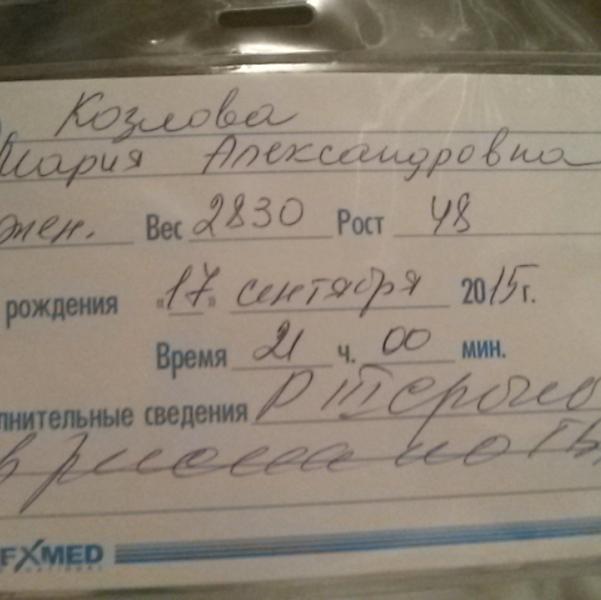 Козлова
Мария Александровна
жен. Вес 2830 Рост 48
рождения «17» сентября 2015г.
Время 21 ч. 00 мин.
лнительные сведения Р III срочн
FXMED